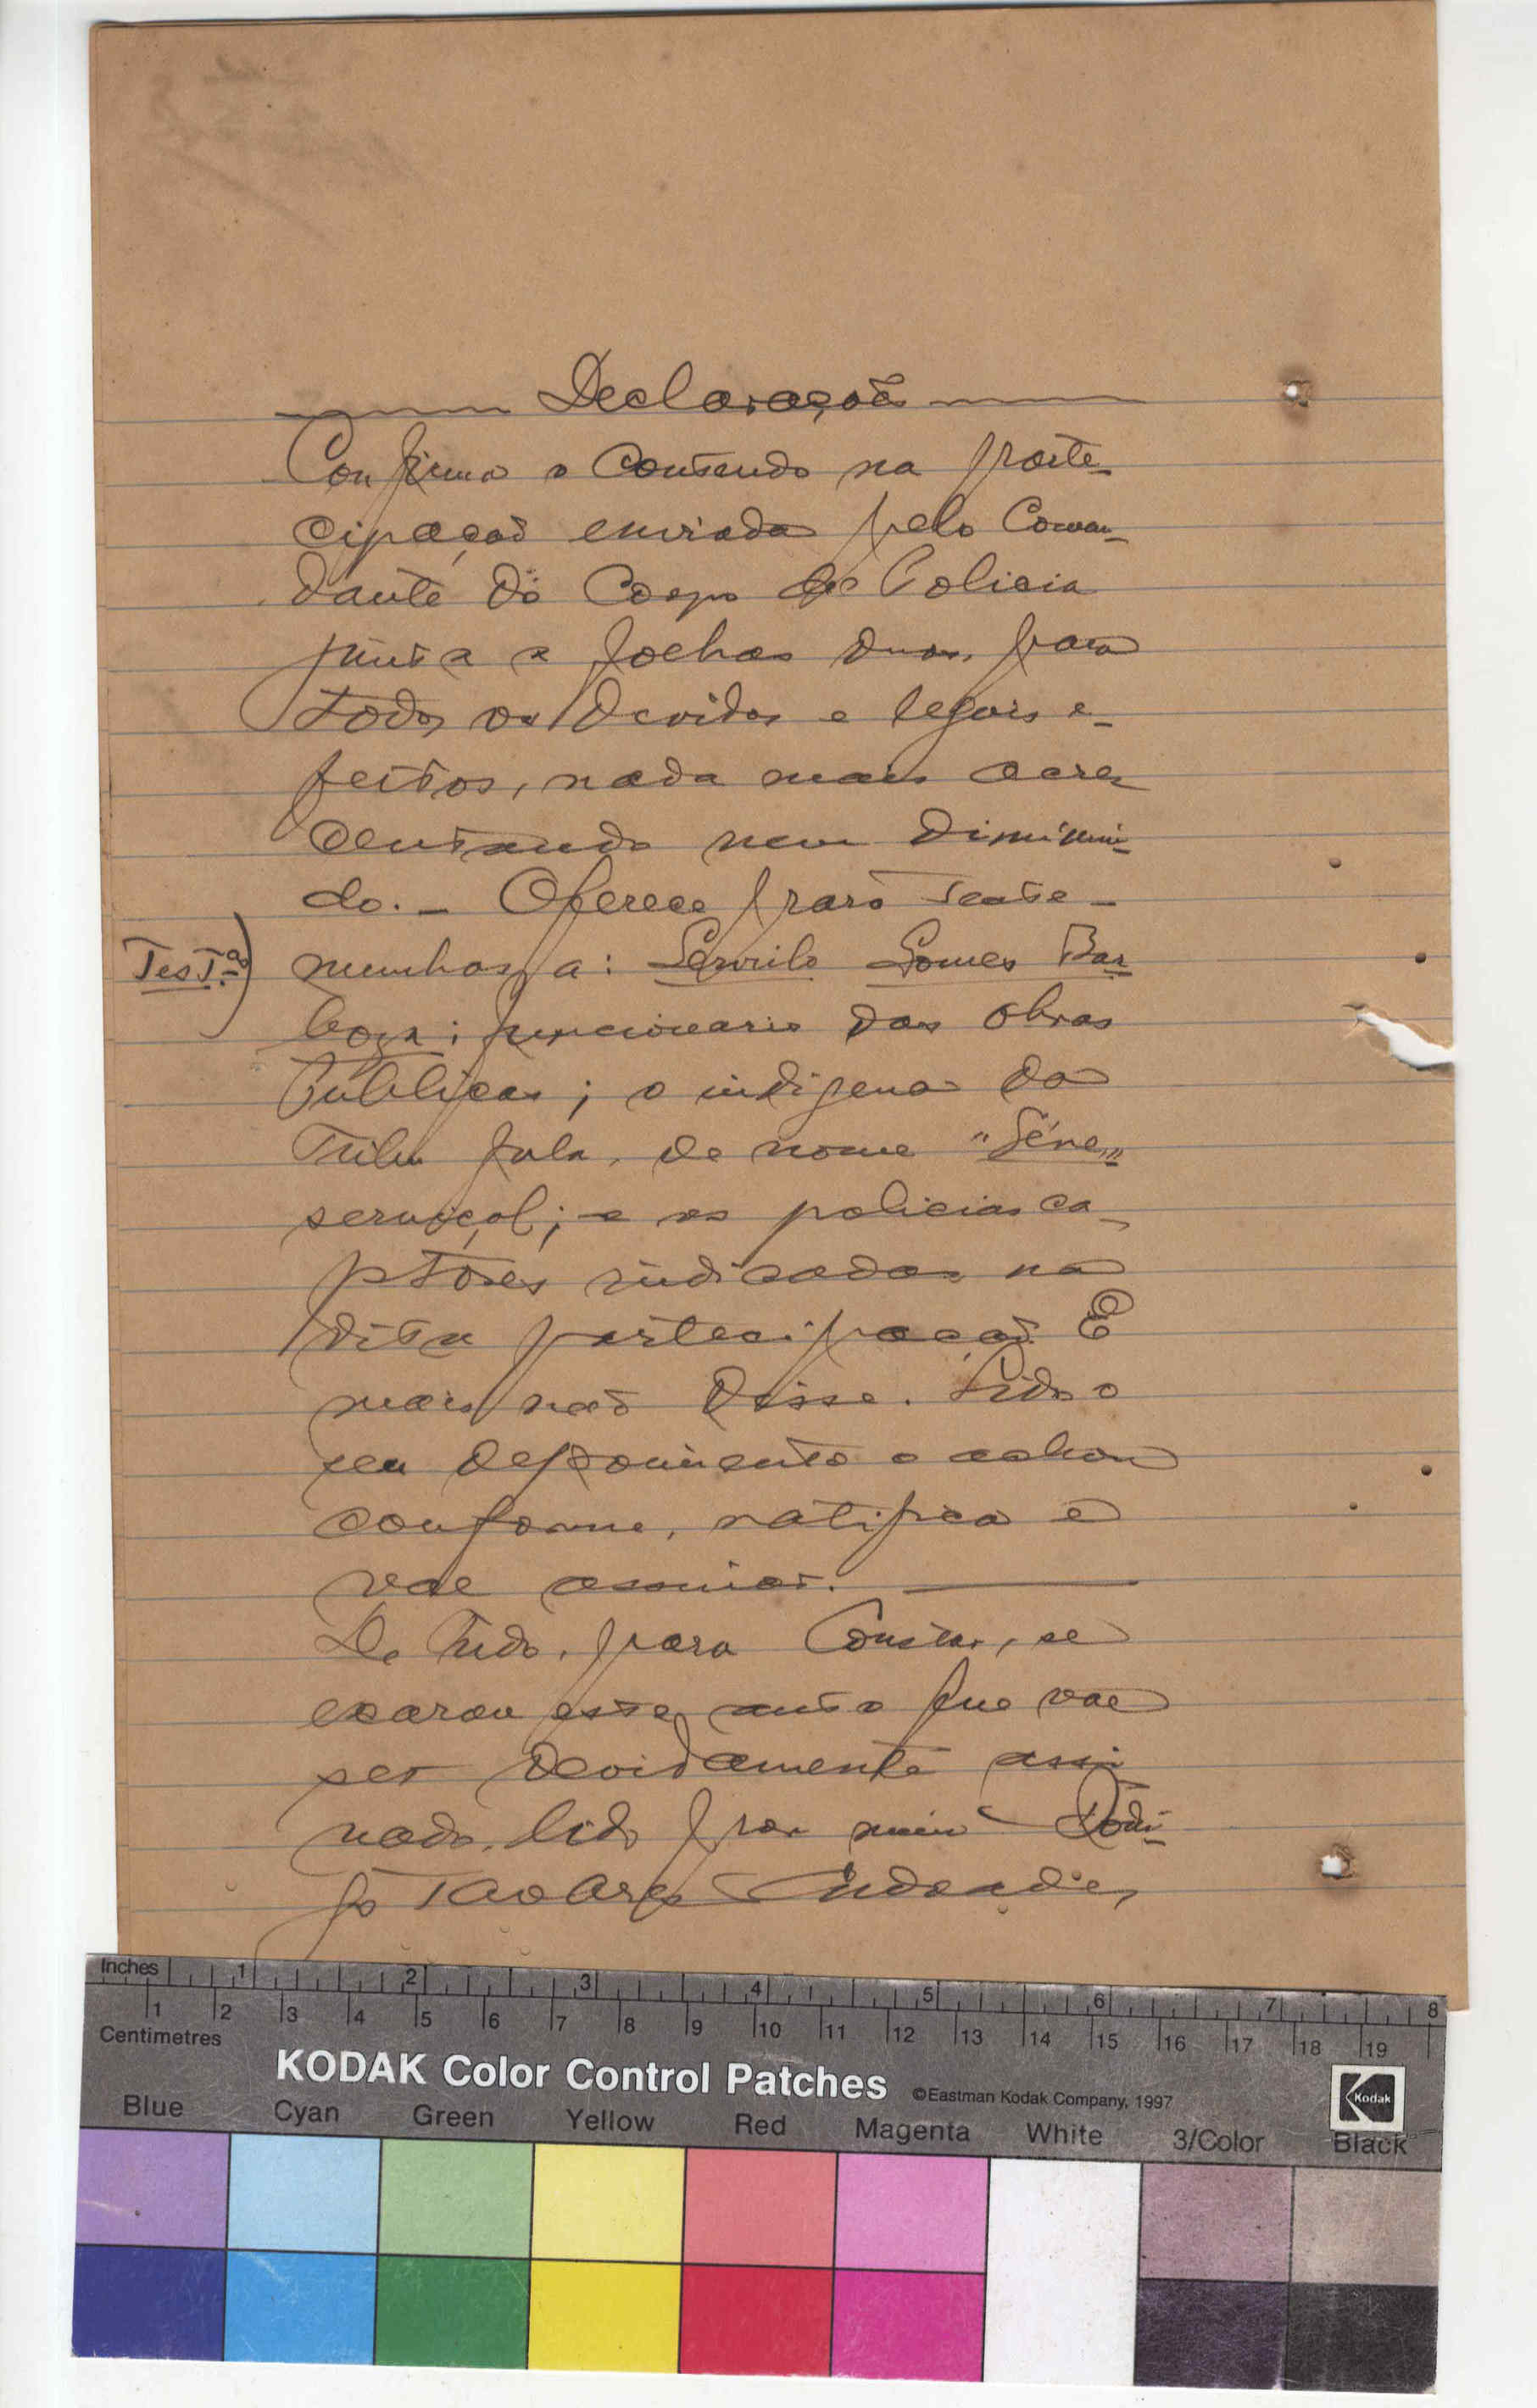 Declaração
Confirma o contendo na parte-
cipação enviada pelo Coman-
dante do Corpo de Policia
junta a folhas duas, para
todos os devidos e legais e-
feitos, nada mais acres
centando nem diminuin-
do. - Oferece para teste-
Test.as) munhas a: Servilo Gomes Bar
boza; funcionario das Obras
Públicas; o indigena da
Tribu fula, de nome "Séne,"
serviçal; e os policias ca-
ptores indicados na
dita partecipação. E
mais não disse. Lido o
seu depoimento o achou
conforme, ratifica e
vae assinar.
De tudo, para constar, se
exarou este auto que vae
ser devidamente assi
nado, lido por mim
go Tavares Andrade,
Inches 1 2 3 4 5 6 7 8
Centimetres 1 2 3 4 5 6 7 8 9 10 11 12 13 14 15 16 17 18 19
KODAK Color Control Patches ©Eastman Kodak Company, 1997 Kodak
Blue Cyan Green Yellow Red Magenta White 3/Color Black